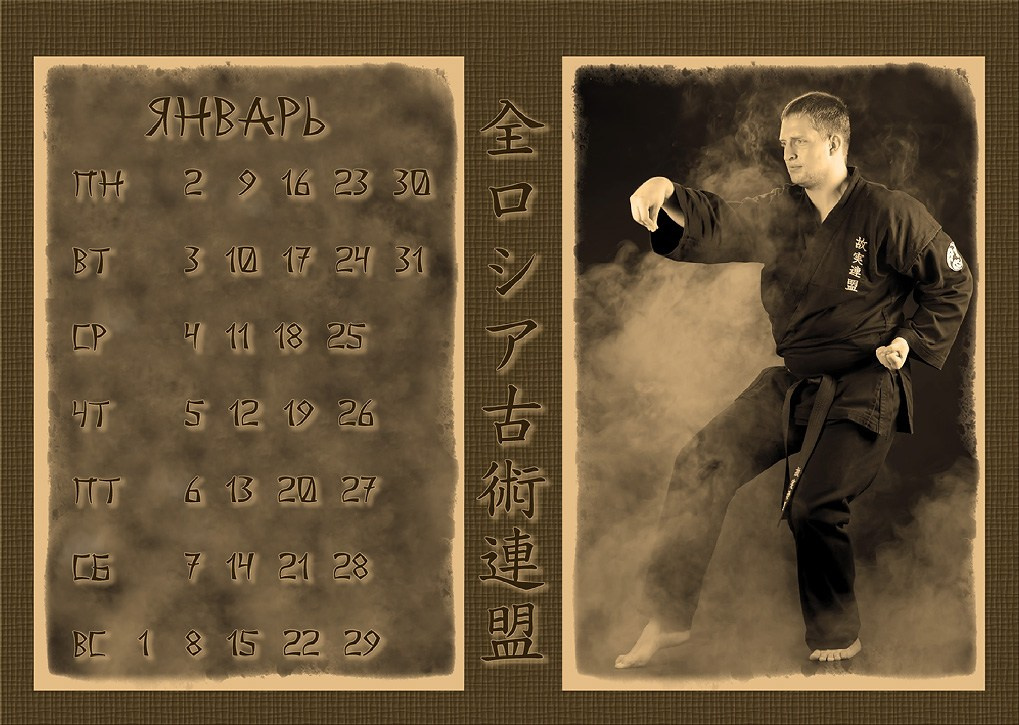 ЯНВАРЬ
ПН 2 9 16 23 30
ВТ 3 10 17 24 31
СР 4 11 18 25
ЧТ 5 12 19 26
ПТ 6 13 20 27
СБ 7 14 21 28
ВС 1 8 15 22 29
全ロシア古術連盟
故実連盟